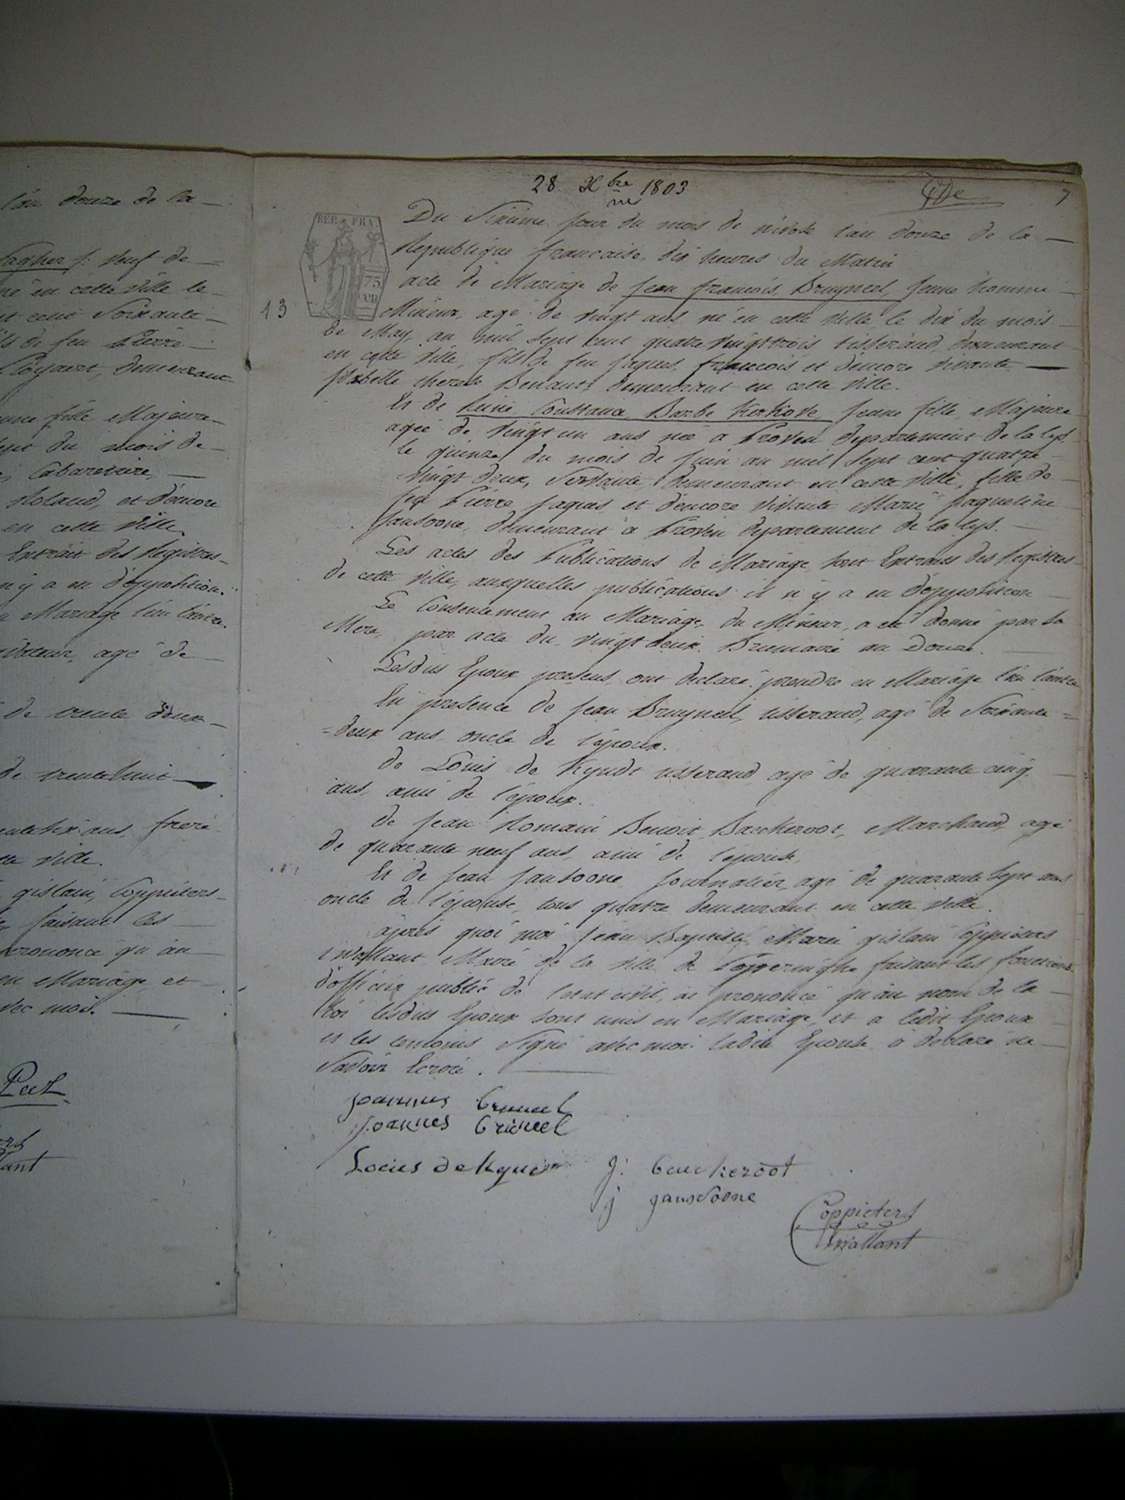 l'an douze de la —
neuf de —
né en cette ville le —
et cent Soixante —
fils de feu Pierre —
demeurant
jeune fille Majeure
sept du mois de —
Cabaretiere, —
Roland, et d'encore
en cette ville
Extrait des Registres —
il n'y a eu d'opposition.
en Mariage l'un l'autre.
agé de —
de trente deux —
de trente huit —
ans, frere
cette ville.
gislain Coppieters —
faisant les —
prononcé qu'au —
en Mariage, et —
avec moi. —
Peel
28 Xbre 1803
7
REP. FRA
75
13
Du Sixieme jour du mois de nivose l'an douze de la —
Republique francaise, dix heures du Matin
acte de Mariage de Jean francois Bruyneel jeune homme —
Mineur, agé de vingt ans né en cette ville le dix du mois —
de May, an mil sept cent quatre vingt trois tisserand, demeurant
en cette ville, fils de feu Jaques francois et d'encore vivante —
Isabelle demeurant en cette ville.
Et de Constance Barbe jeune fille Majeure
agée de vingt un ans née a Proven departement de la lys
le quinze du mois de Juin an mil sept cent quatre —
vingt deux, Servante demeurant en cette ville, fille de —
feu Pierre Jaques et d'encore vivante Marie Jaqueline
Jansoone, demeurant a Proven departement de la lys. —
Les actes des Publications de Mariage, sont Extraits des Registres —
de cette ville, auxquelles publications il n'y a eu d'opposition —
Le Consentement au Mariage du Mineur, a été donné par la
Mere, par acte du vingt deux Brumaire an Douze. —
Lesdits Epoux presens ont declaré prendre en Mariage l'un l'autre
En presence de Jean Bruyneel, tisserand, agé de Soixante =
= deux ans oncle de l'époux.
de Louis de Kyndt tisserand agé de quarante cinq —
ans, ami de l'époux.
de Jean Romain Benoit Marchand, agé
de quarante neuf ans, ami de l'epouse,
Et de Jean Jansoone Journalier, agé de quarante Sept ans
oncle de l'épouse, tous quatre demeurant en cette ville.
après quoi moi Jean Baptiste Marie gislain Coppieters
t'wallant Maire de la ville de Poperinghe faisant les fonctions
d'officier public de l'etat civil, ai prononcé qu'au nom de la —
loi lesdits Epoux sont unis en Mariage, et a ledit Epoux
et les temoins Signé avec moi ladite Epouse a declaré ne —
Savoir Ecrire. —
Joannes
Joannes
J:
j Jansoone
Coppieters
t'wallant